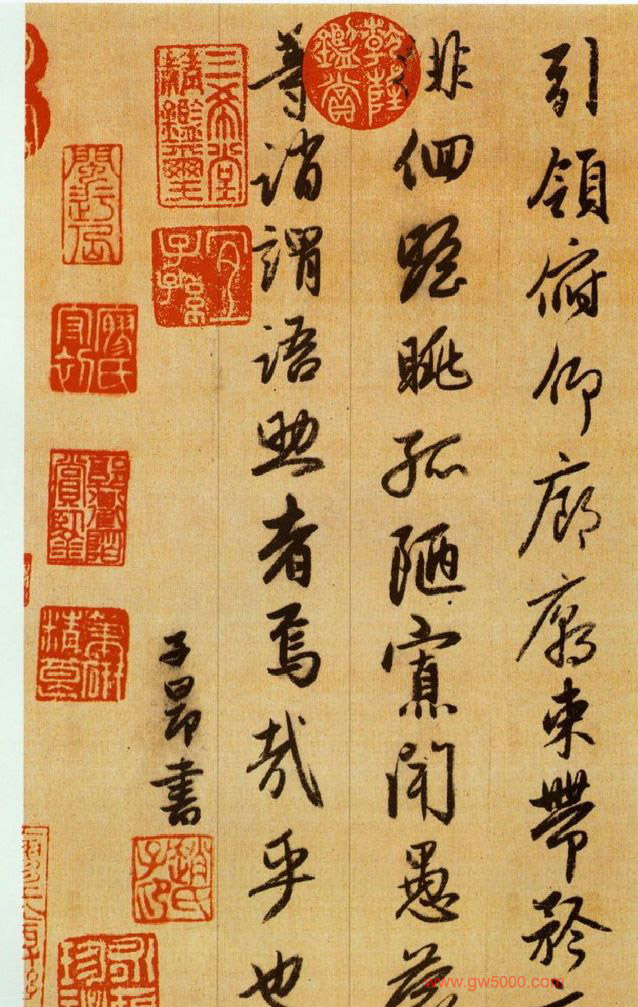 引領俯仰廊廟束帶矜
徘佪瞻眺孤陋寡聞愚蒙
等誚謂語助者焉哉乎也
子昂書
乾隆鑑賞
三希堂精鑑璽
宜子孫
趙氏子昂
www.gw5000.com